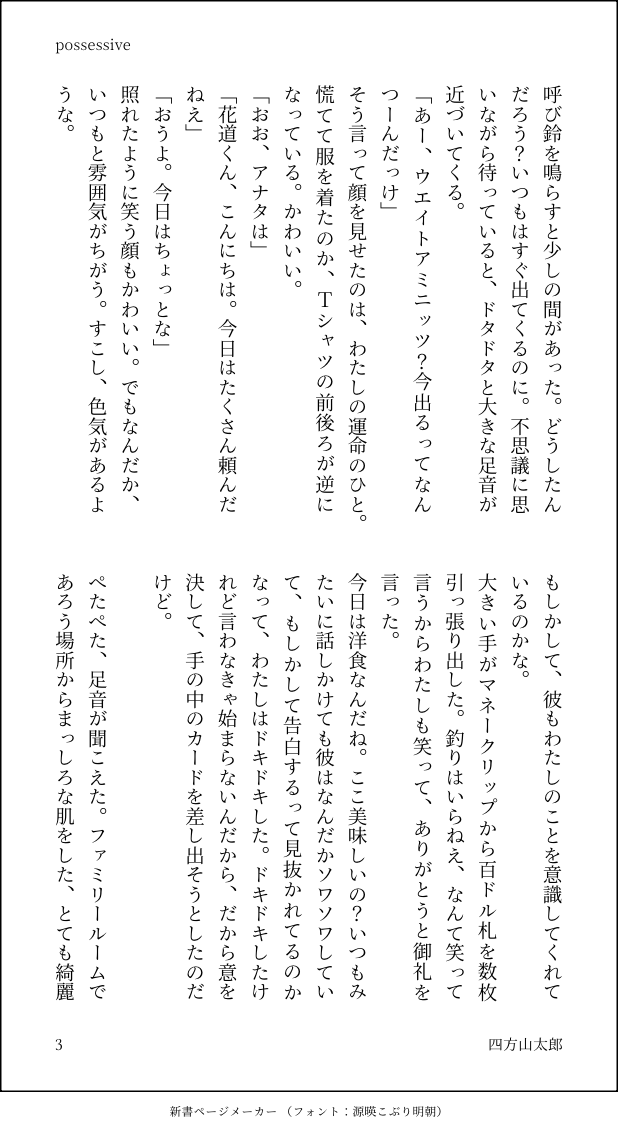 possessive
呼び鈴を鳴らすと少しの間があった。どうしたん
だろう？いつもはすぐ出てくるのに。不思議に思
いながら待っていると、ドタドタと大きな足音が
近づいてくる。
「あー、ウエイトアミニッツ？今出るってなん
つーんだっけ」
そう言って顔を見せたのは、わたしの運命のひと。
慌てて服を着たのか、Tシャツの前後ろが逆に
なっている。かわいい。
「おお、アナタは」
「花道くん、こんにちは。今日はたくさん頼んだ
ねえ」
「おうよ。今日はちょっとな」
照れたように笑う顔もかわいい。でもなんだか、
いつもと雰囲気がちがう。すこし、色気があるよ
うな。
もしかして、彼もわたしのことを意識してくれて
いるのかな。
大きい手がマネークリップから百ドル札を数枚
引っ張り出した。釣りはいらねえ、なんて笑って
言うからわたしも笑って、ありがとうと御礼を
言った。
今日は洋食なんだね。ここ美味しいの？いつもみ
たいに話しかけても彼はなんだかソワソワしてい
て、もしかして告白するって見抜かれてるのか
なって、わたしはドキドキした。ドキドキしたけ
れど言わなきゃ始まらないんだから、だから意を
決して、手の中のカードを差し出そうとしたのだ
けど。
ぺたぺた、足音が聞こえた。ファミリールームで
あろう場所からまっしろな肌をした、とても綺麗
3
四方山太郎
新書ページメーカー（フォント：源暎こぶり明朝）